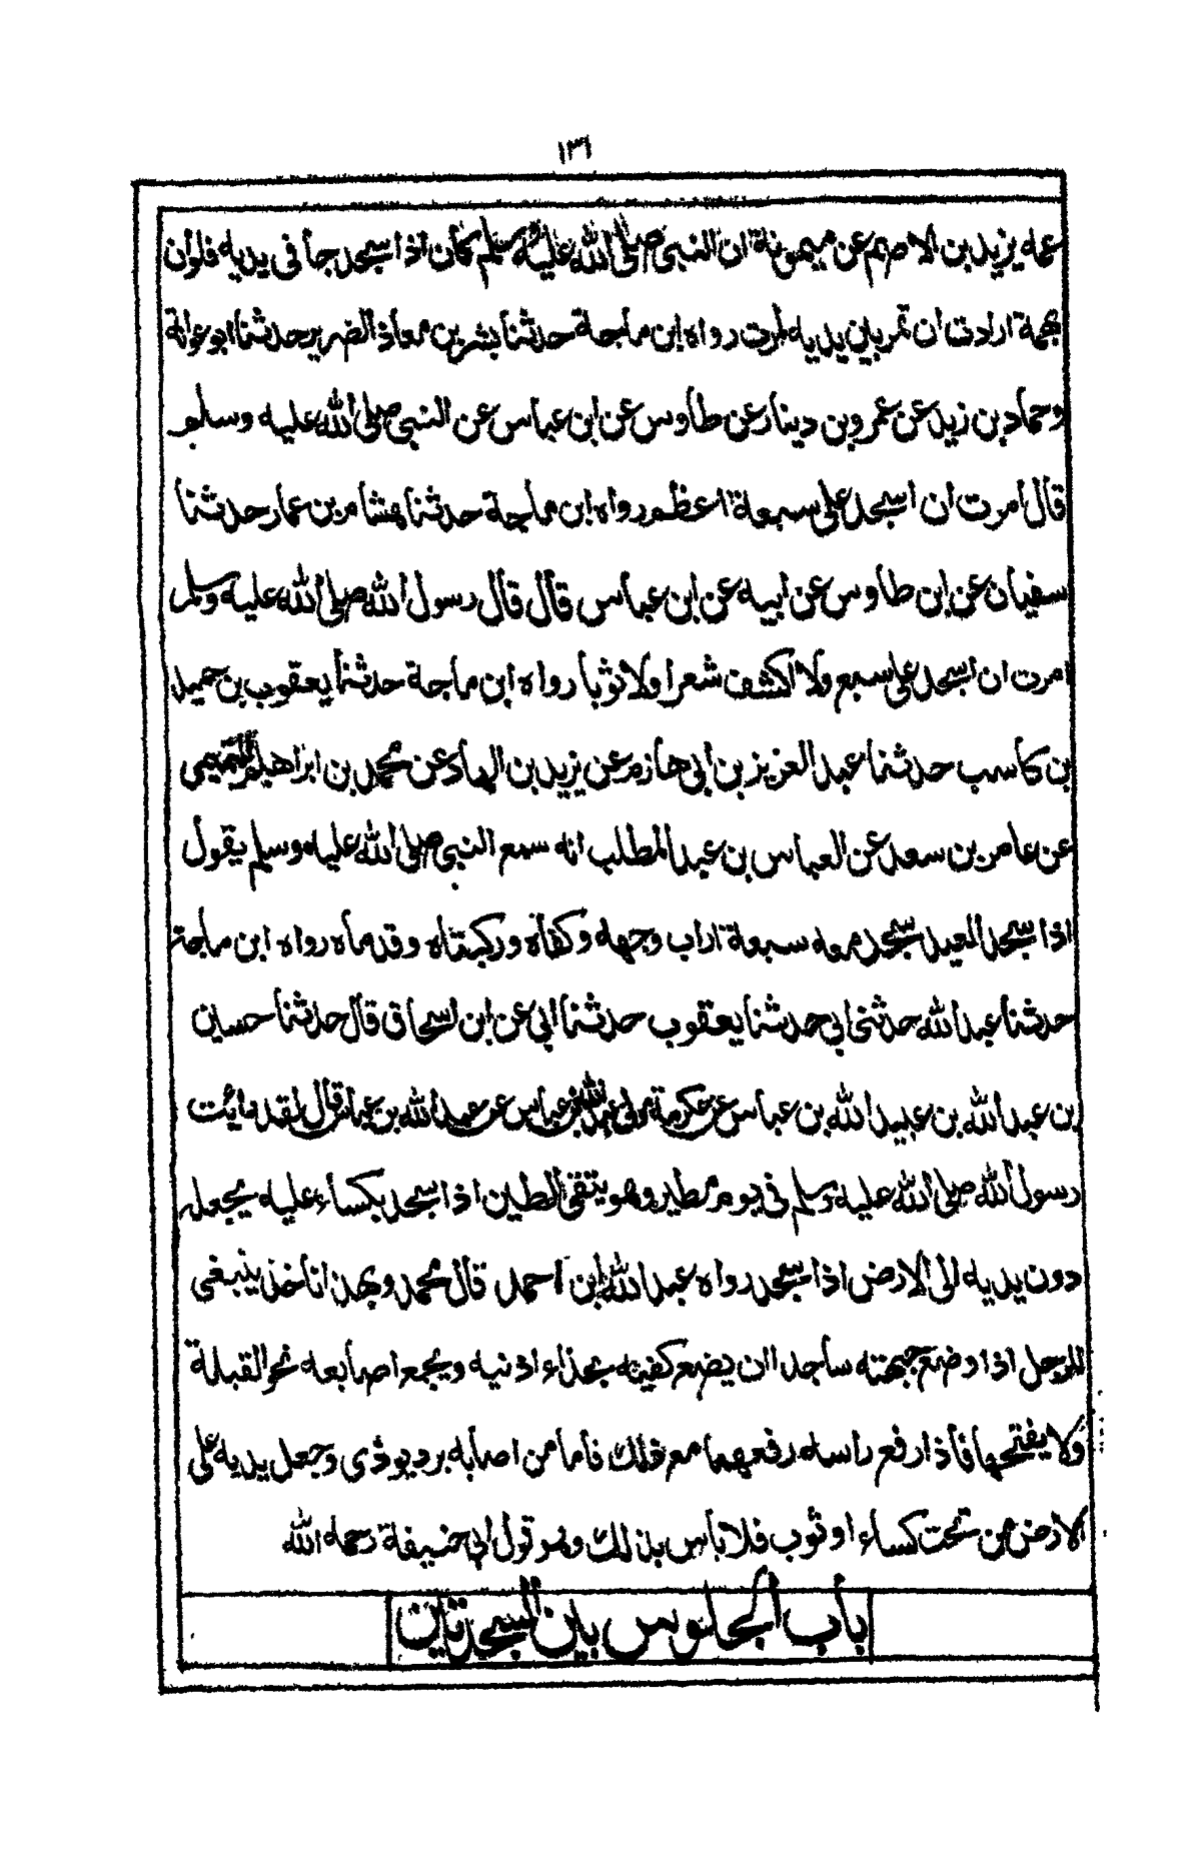 ١٣٦
عمه يزيد بن الاصم عن ميمونة ان النبي صلى الله عليه وسلم كان اذا سجد جافى يديه فلوان
بهمة ارادت ان تمر بين يديه لمرت رواه ابن ماجة حدثنا بشر بن معاذ الضرير حدثنا ابو عوانة
وحماد بن زيد عن عمرو بن دينار عن طاوس عن ابن عباس عن النبي صلى الله عليه وسلم
قال امرت ان اسجد على سبعة اعظم رواه ابن ماجة حدثنا هشام بن عمار حدثنا
سفيان عن ابن طاوس عن ابيه عن ابن عباس قال قال رسول الله صلى الله عليه وسلم
امرت ان اسجد على سبع ولا اكشف شعرا ولا ثوبا رواه ابن ماجة حدثنا يعقوب بن حميد
بن كاسب حدثنا عبد العزيز بن ابي حازم عن يزيد بن الهاد عن محمد بن ابراهيم التيمي
عن عامر بن سعد عن العباس بن عبد المطلب انه سمع النبي صلى الله عليه وسلم يقول
اذا سجد العبد سجد معه سبعة اراب وجهه وكفاه وركبتاه وقدماه رواه ابن ماجة
حدثنا عبد الله حدثني ابي حدثنا يعقوب حدثنا ابي عن ابن اسحاق قال حدثنا حسين
بن عبد الله بن عبيد الله بن عباس عن عكرمة مولى عبد الله بن عباس عن عبد الله بن عباس قال لقد رائت
رسول الله صلى الله عليه وسلم في يوم مطير وهو يتقي الطين اذا سجد بكساء عليه يجعله
دون يديه الى الارض اذا سجد رواه عبد الله ابن احمد قال محمد وبهذا ناخذ ينبغي
للرجل اذا وضع جبهته ساجدا ان يضع كفيه بحذاء اذنيه ويجمع اصابعه نحو القبلة
ولا يفتحها فاذا رفع راسه رفعهما مع ذلك فاما من اصابه برد يوذى وجعل يديه على
الارض من تحت كساء او ثوب فلا باس بذلك وهو قول ابي حنيفة رحمه الله
باب الجلوس بين السجدتين